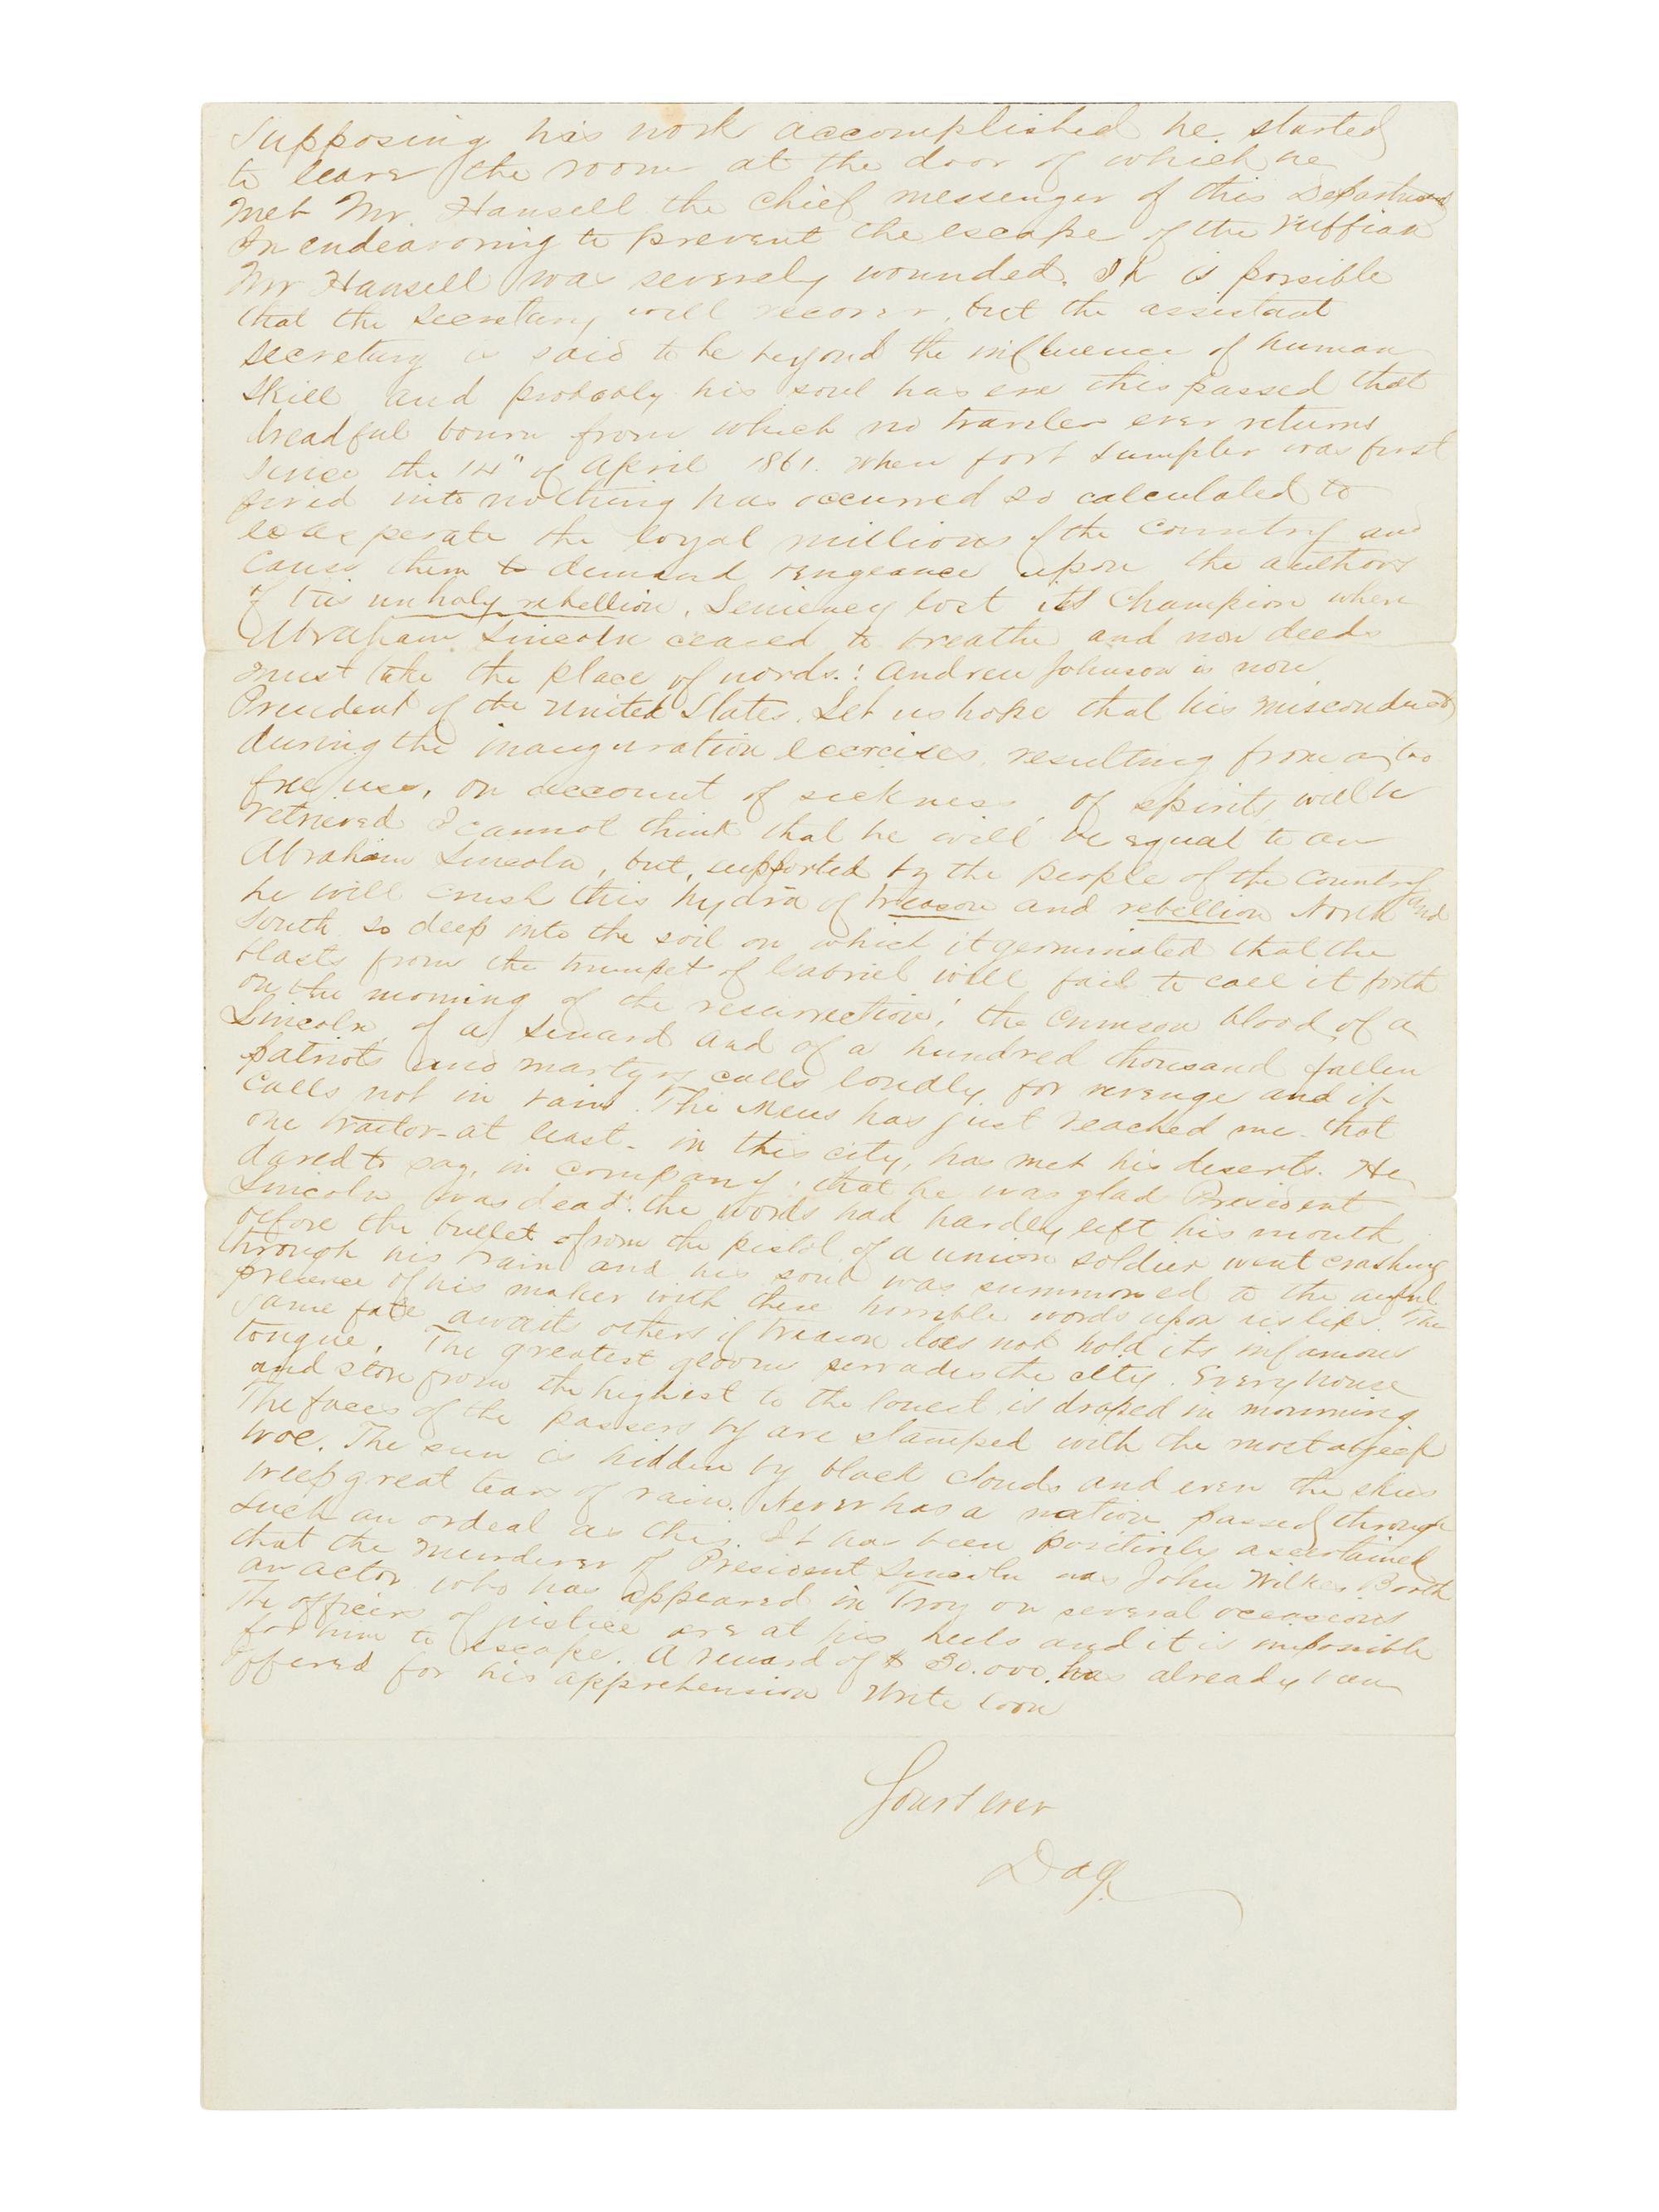 Supposing his work accomplished he started
to leave the room at the door of which he
met Mr. Hansell the chief messenger of this Department
In endeavoring to prevent the escape of the ruffian
Mr Hansell was severely wounded. It is possible
that the Secretary will recover, but the assistant
secretary is said to be beyond the influence of human
skill and probably his soul has ere this passed that
dreadful bourn from which no traveler ever returns
Since the 14" of April 1861. when fort Sumpter was first
fired into nothing has occurred so calculated to
exasperate the loyal millions of the country and
cause them to demand vengeance upon the authors
of this unholy rebellion. Leniency lost its Champion when
Abraham Lincoln ceased to breathe and now deeds
must take the place of words.! Andrew Johnson is now
President of the United States. Let us hope that his misconduct
during the inauguration exercises, resulting from a too
free use, on account of sickness, of spirits, will be
retrieved I cannot think that he will be equal to an
Abraham Lincoln, but, supported by the people of the country
he will crush this hydra of treason and rebellion North and
South so deep into the soil on which it germinated that the
blasts from the trumpet of Gabriel will fail to call it forth
on the morning of the resurrection! the Crimson blood of a
Lincoln, of a Seward and of a hundred thousand fallen
patriots and martyrs calls loudly for revenge and it
calls not in vain. The News has just reached me that
one traitor-at least- in this city, has met his deserts. He
dared to say, in company, that he was glad President
Lincoln was dead". the words had hardly left his mouth
before the bullet from the pistol of a union soldier went crashing
through his brain and his soul was summoned to the awful
presence of his maker with these horrible words upon his lips. The
same fate awaits others if treason does not hold its infamous
tongue. The greatest gloom pervades the city. Every house
and store from the highest to the lowest is draped in mourning.
The faces of the passers by are stamped with the most abject
woe. The sun is hidden by black clouds and even the skies
weep great tears of rain. Never has a nation passed through
such an ordeal as this. It has been positively ascertained
that the murderer of President Lincoln was John Wilkes Booth
an actor who has appeared in Troy on several occasions
The officers of justice are at his heels and it is impossible
for him to escape. A reward of $ 30.000. has already been
offered for his apprehension Write soon
Yours ever
Dag